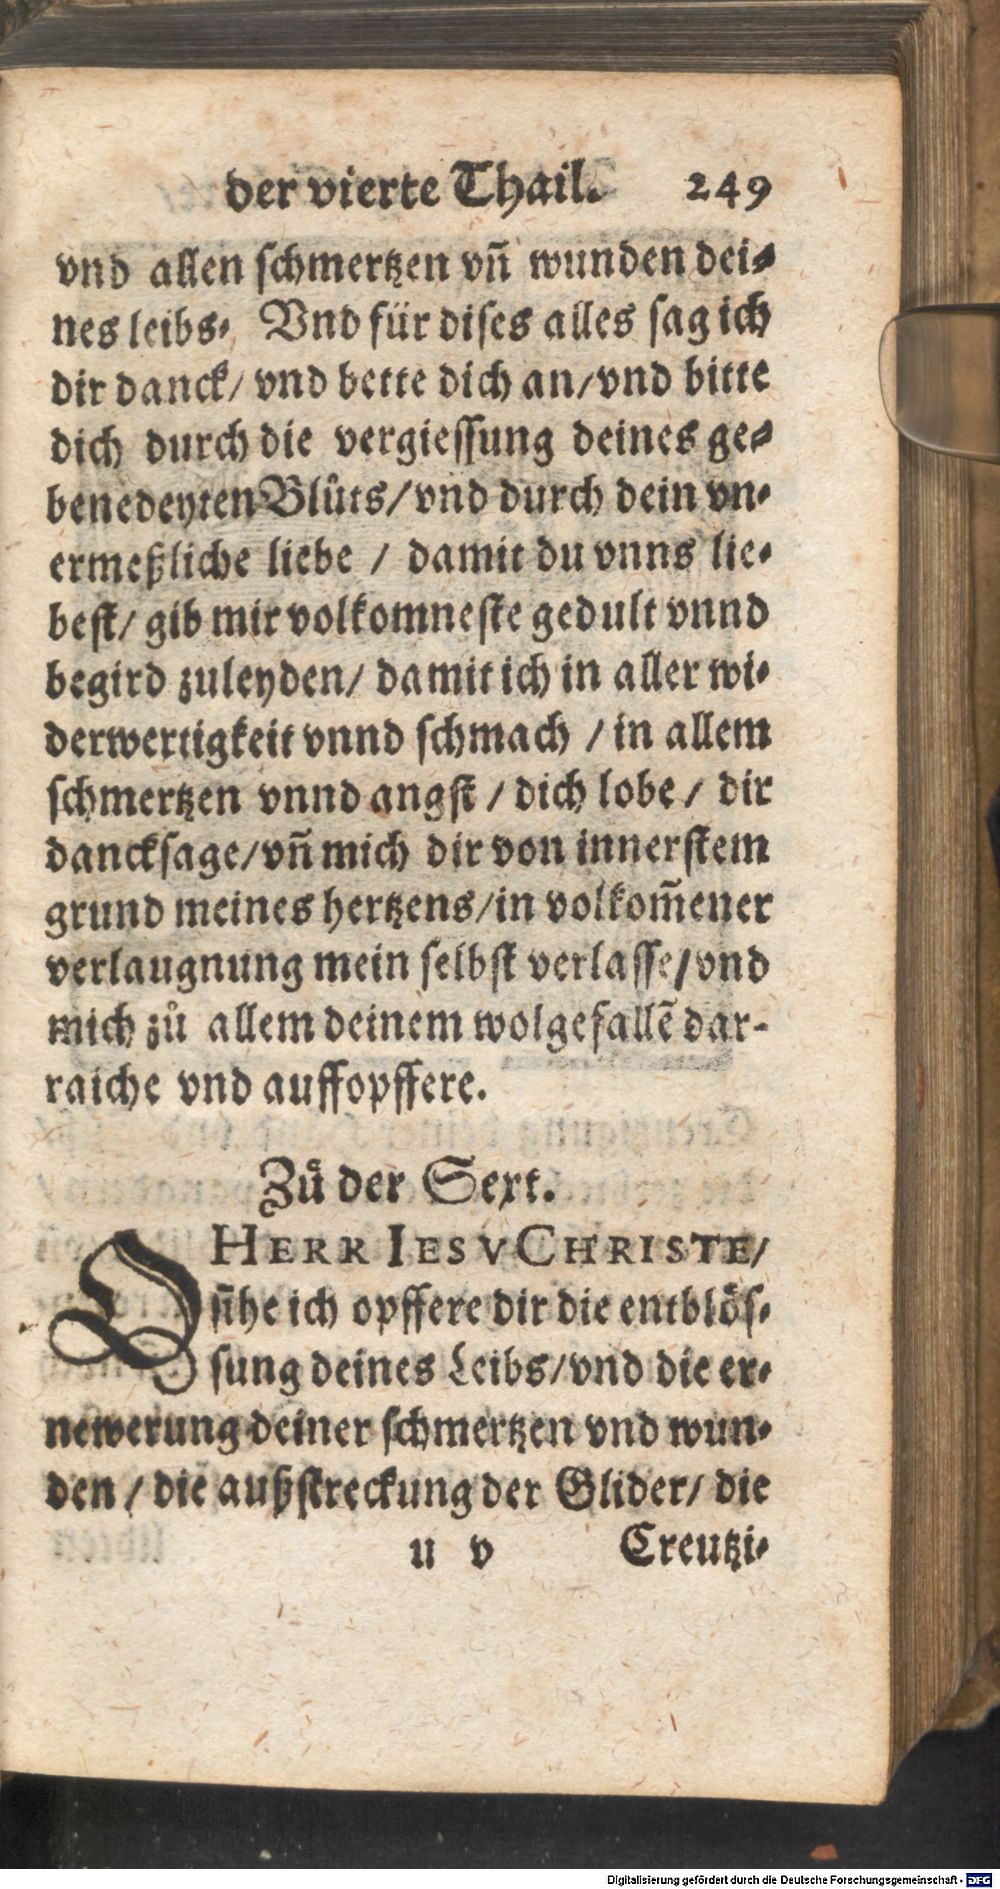 der vierte Thail. 249
vnd allen schmertzen vñ wunden dei⸗
nes leibs. Vnd für dises alles sag ich
dir danck/ vnd bette dich an/vnd bitte
dich durch die vergiessung deines ge⸗
benedeyten Blůts/vnd durch dein vn⸗
ermeßliche liebe / damit du vnns lie⸗
best/ gib mir volkomneste gedult vnnd
begird zuleyden/ damit ich in aller wi⸗
derwertigkeit vnnd schmach / in allem
schmertzen vnnd angst / dich lobe / dir
dancksage/vñ mich dir von innerstem
grund meines hertzens/in volkom̃ener
verlaugnung mein selbst verlasse/vnd
mich zů allem deinem wolgefallẽ dar-
raiche vnd auffopffere.
Zů der Sext.
O HERR IESV CHRISTE/
sihe ich opffere dir die entblös⸗
sung deines Leibs/vnd die er⸗
newerung deiner schmertzen vnd wun⸗
den / die außstreckung der Glider/ die
u v Creutzi⸗
Digitalisierung gefördert durch die Deutsche Forschungsgemeinschaft - DFG